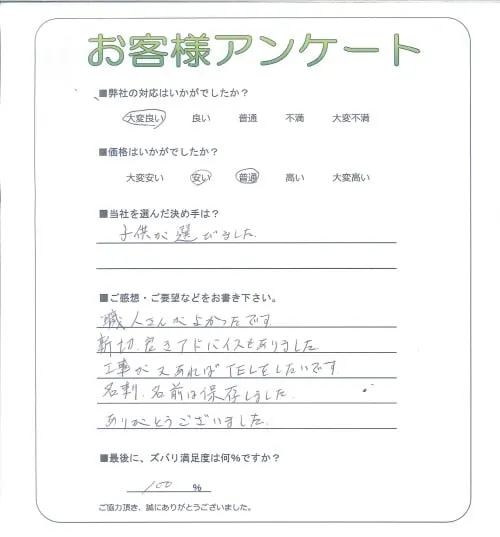 お客様アンケート
■弊社の対応はいかがでしたか？
大変良い 良い 普通 不満 大変不満
■価格はいかがでしたか？
大変安い 安い 普通 高い 大変高い
■当社を選んだ決め手は？
子供が選びました.
■ご感想・ご要望などをお書き下さい。
職人さんがよかったです
新切.良きアドバイスもありました
工事が又あればTELをしたいです.
名刺.名前は保存しました.
ありがとうございました.
■最後に、ズバリ満足度は何％ですか？
100 ％
ご協力頂き、誠にありがとうございました。